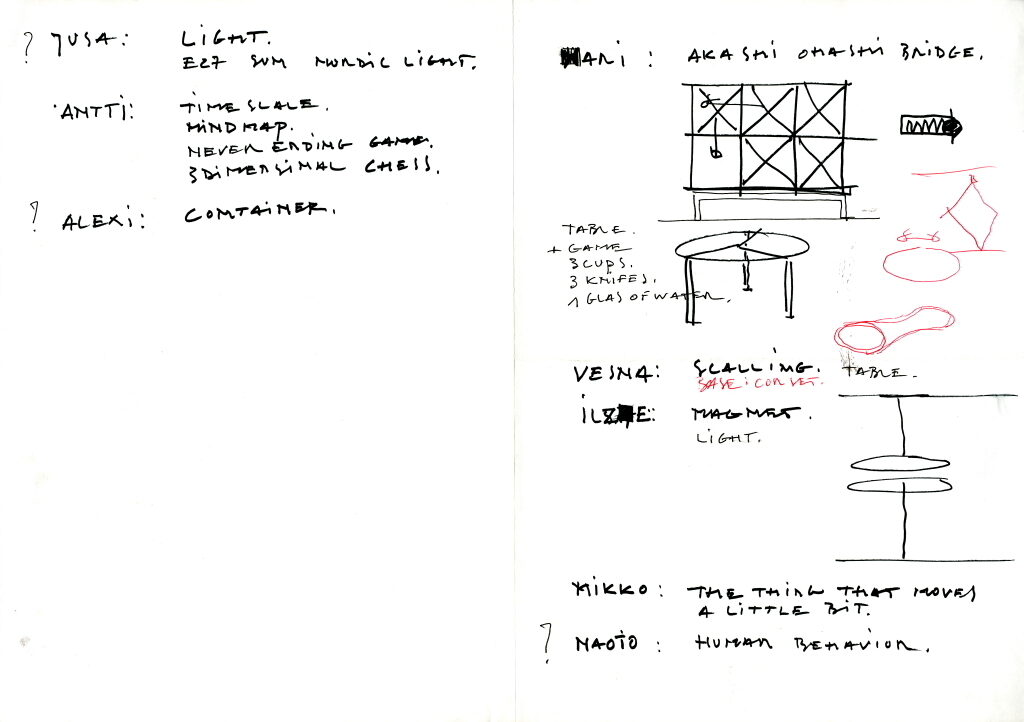 ? JUSA: LIGHT.
E27 SUN NORDIC LIGHT.
ANTTI: TIMESCALE.
MINDMAP.
NEVER ENDING GAME.
3DIMENSIMAL CHESS.
? ALEXI: CONTAINER.
ARI: AKASHI OHASHI BRIDGE.
TABLE.
+ GAME
3 CUPS.
3 KNIFES.
1 GLAS OF WATER.
VESNA: SCALLING. TABLE.
ILZE: MAGNET.
LIGHT.
MIKKO: THE THING THAT MOVES
A LITTLE BIT.
? NAOTO: HUMAN BEHAVIOR.